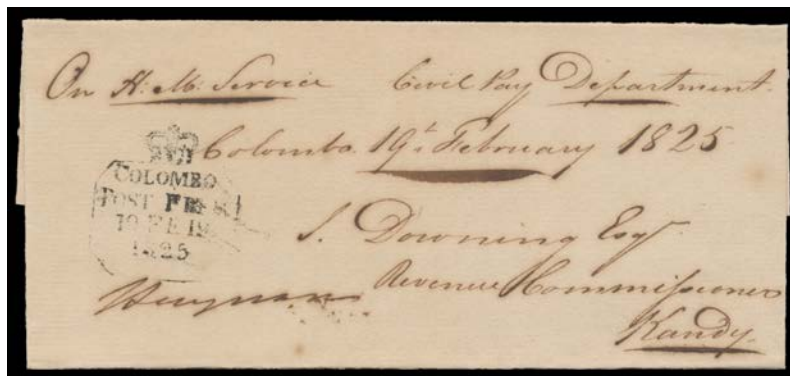 On H: M: Service Civil Pay Department
Colombo 19th February 1825
COLOMBO
POST FREE
19 FE 19
1825
S. Downing Esqr
Revenue Commissioner
Kandy.